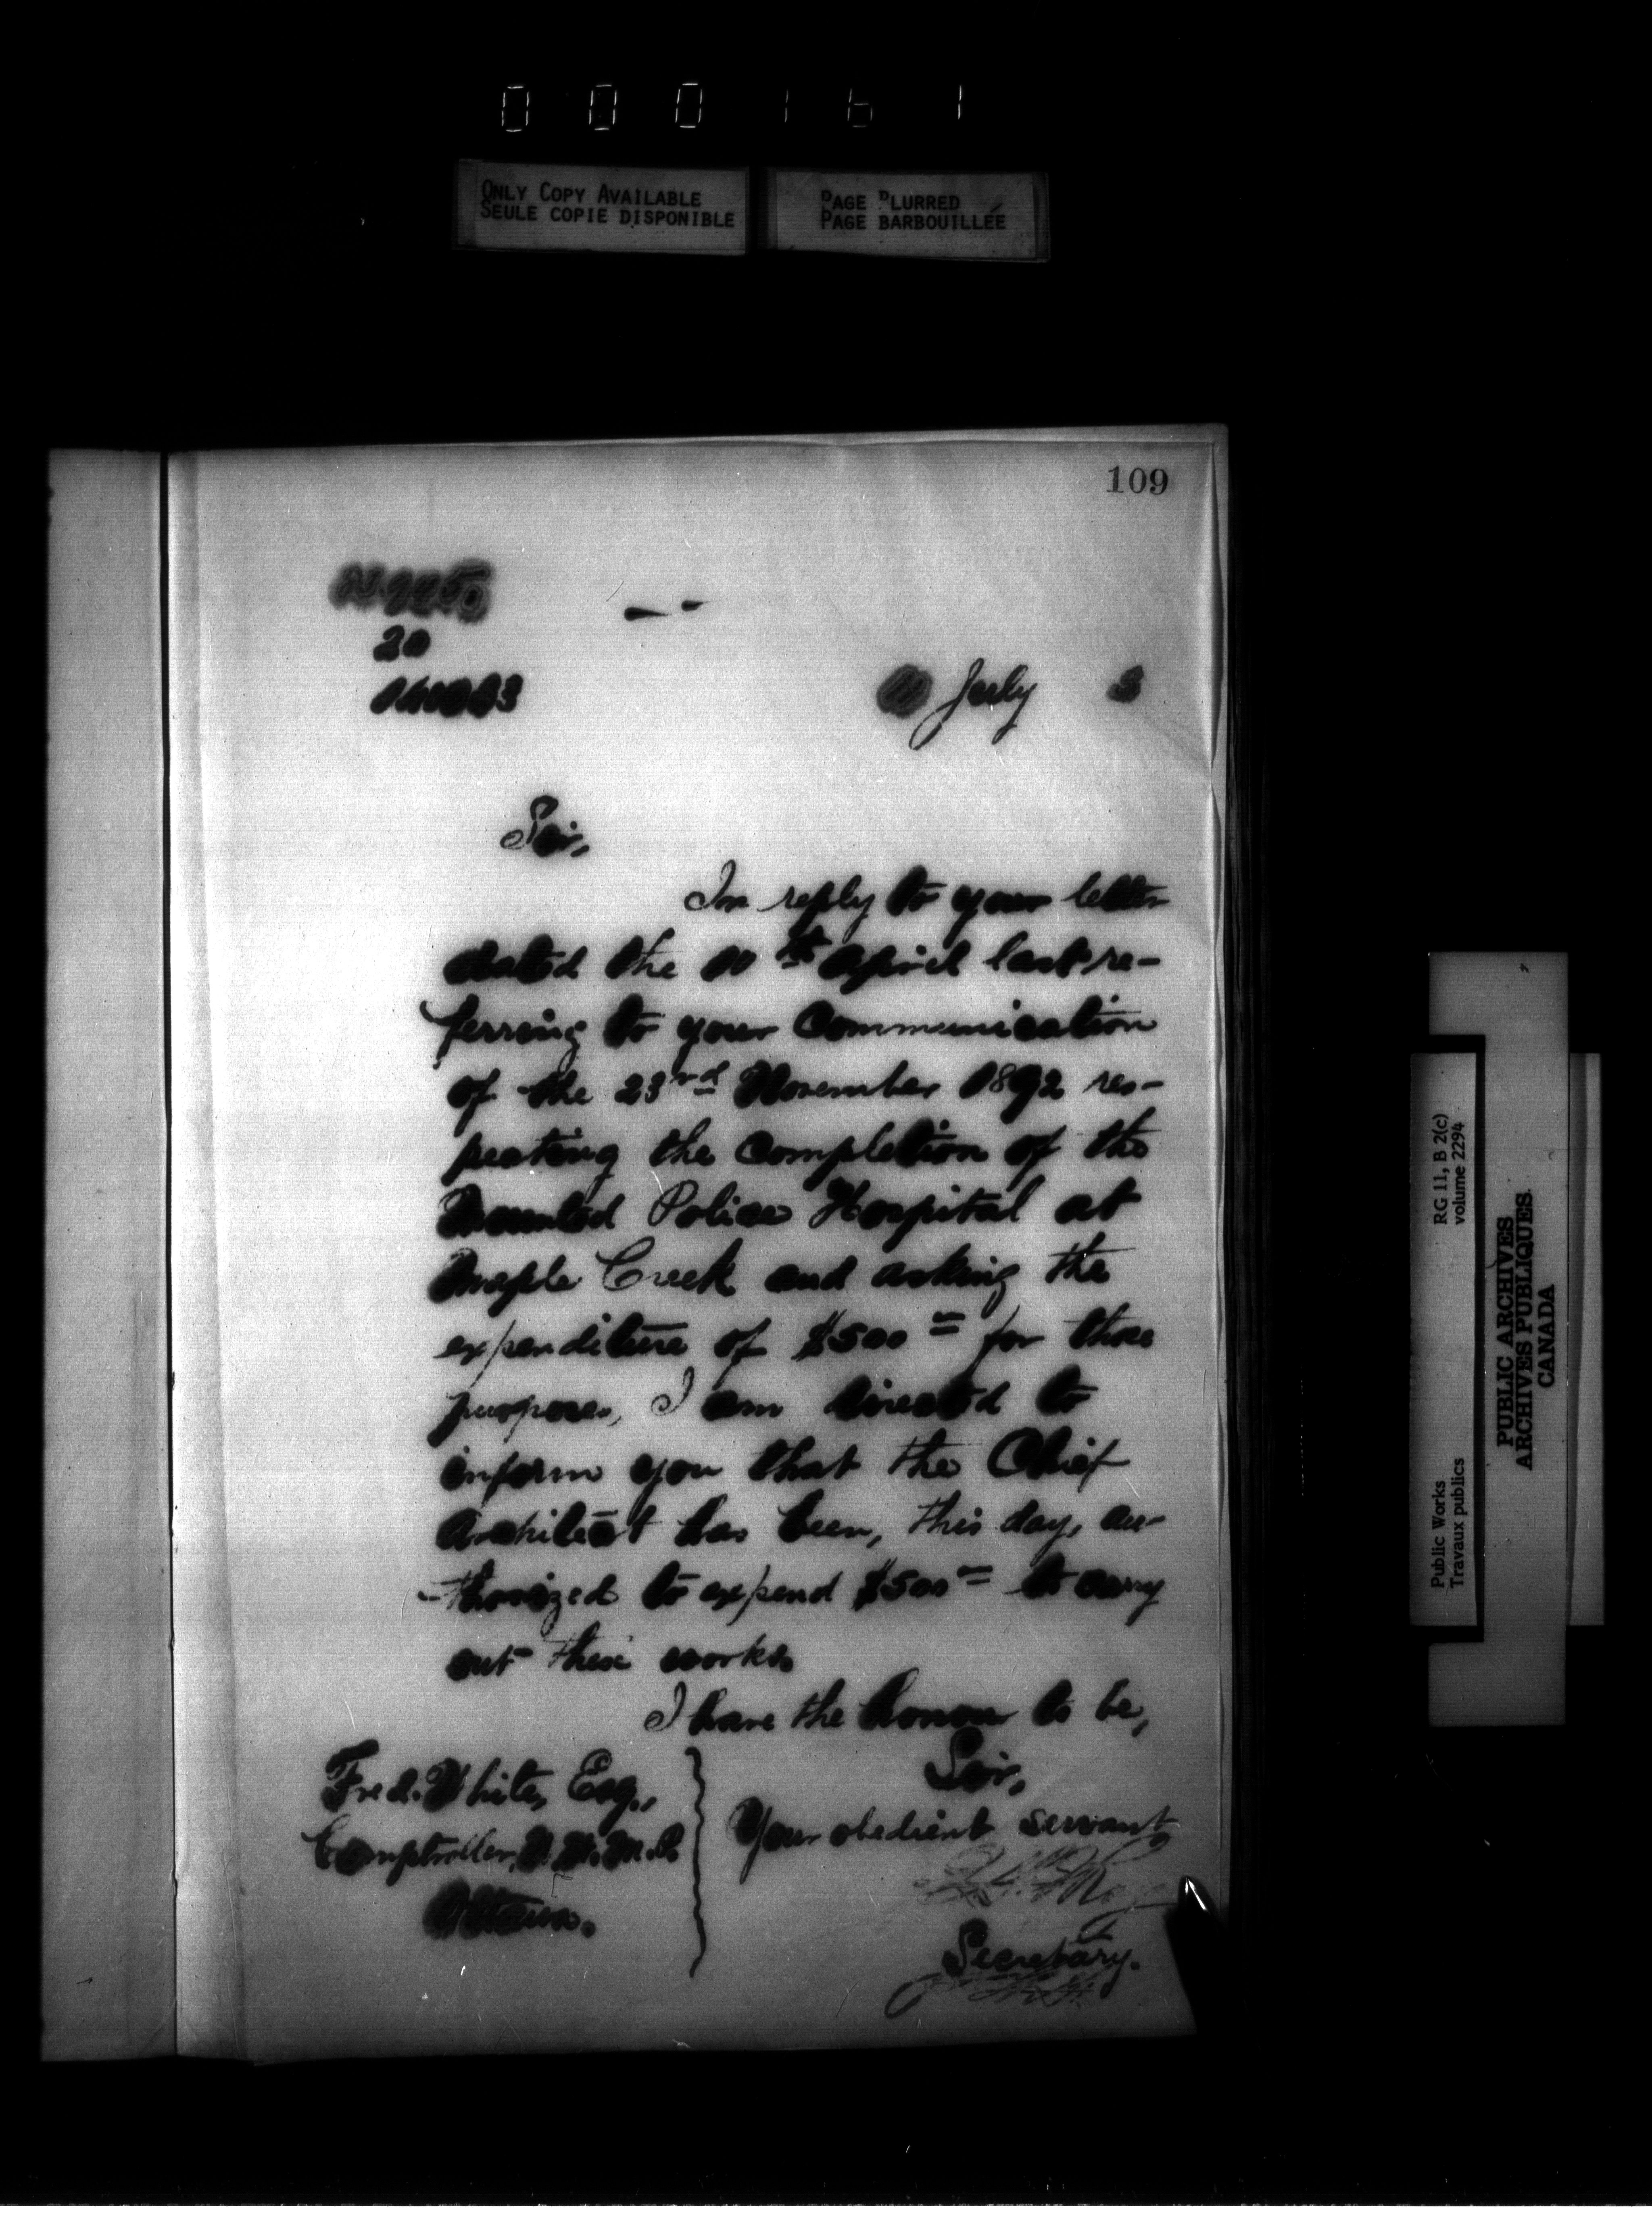 000161
ONLY COPY AVAILABLE
SEULE COPIE DISPONIBLE
PAGE BLURRED
PAGE BARBOUILLÉE
109
20
July 3
Sir,
In reply to your letter
dated the April last re-
ferring to your Communication
of the 23rd November 1892 res-
pecting the Completion of the
Mounted Police Hospital at
Maple Creek and asking the
expenditure of $500 for those
purposes, I am directed to
inform you that the Chief
Architect has been, this day, au-
-thorized to expend $500 to carry
out these works.
I have the honour to be,
Sir,
Your obedient servant
Secretary.
Fred. White, Esq.,
Comptroller, N.W.M.P.
Ottawa.
Public Works
Travaux publics
RG 11, B 2(c)
volume 2294
PUBLIC ARCHIVES
ARCHIVES PUBLIQUES
CANADA